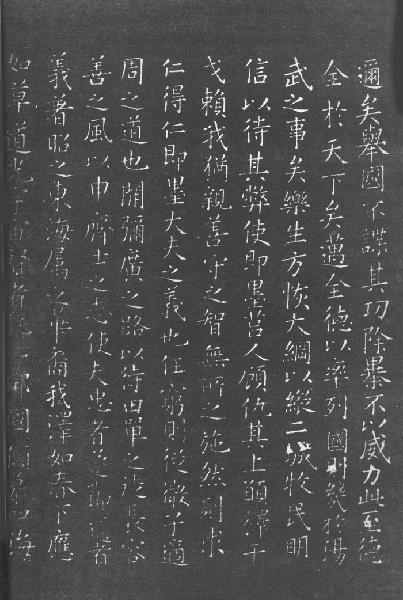 邇矣舉國不謀其功除暴不以威力此至德
全於天下矣邁全德以率列國則幾於湯
武之事矣樂生方恢大綱以縱二城牧民明
信以待其弊使即墨莒人顧仇其上願釋干
戈賴我猶親善守之智無所之施然則求
仁得仁即墨大夫之義也任窮則從微子適
周之道也開彌廣之路以待田單之徒長容
善之風以申齊士之志使夫忠者遂節通者
義著昭之東海屬之華裔我澤如春下應
如草道光宇宙者